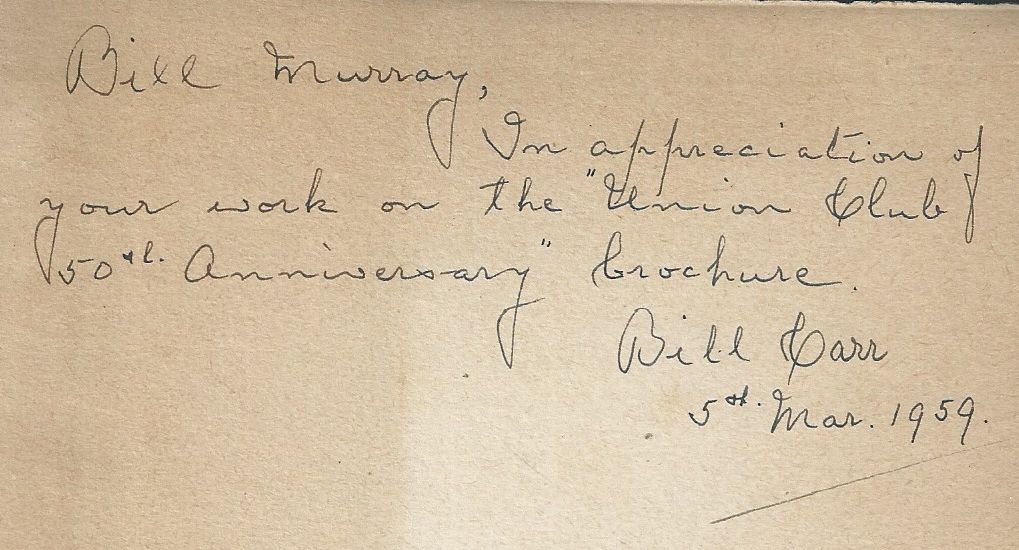 Bill Murray,
In appreciation of
your work on the "Union Club
50th. Anniversary" brochure.
Bill Carr
5th. Mar. 1959.